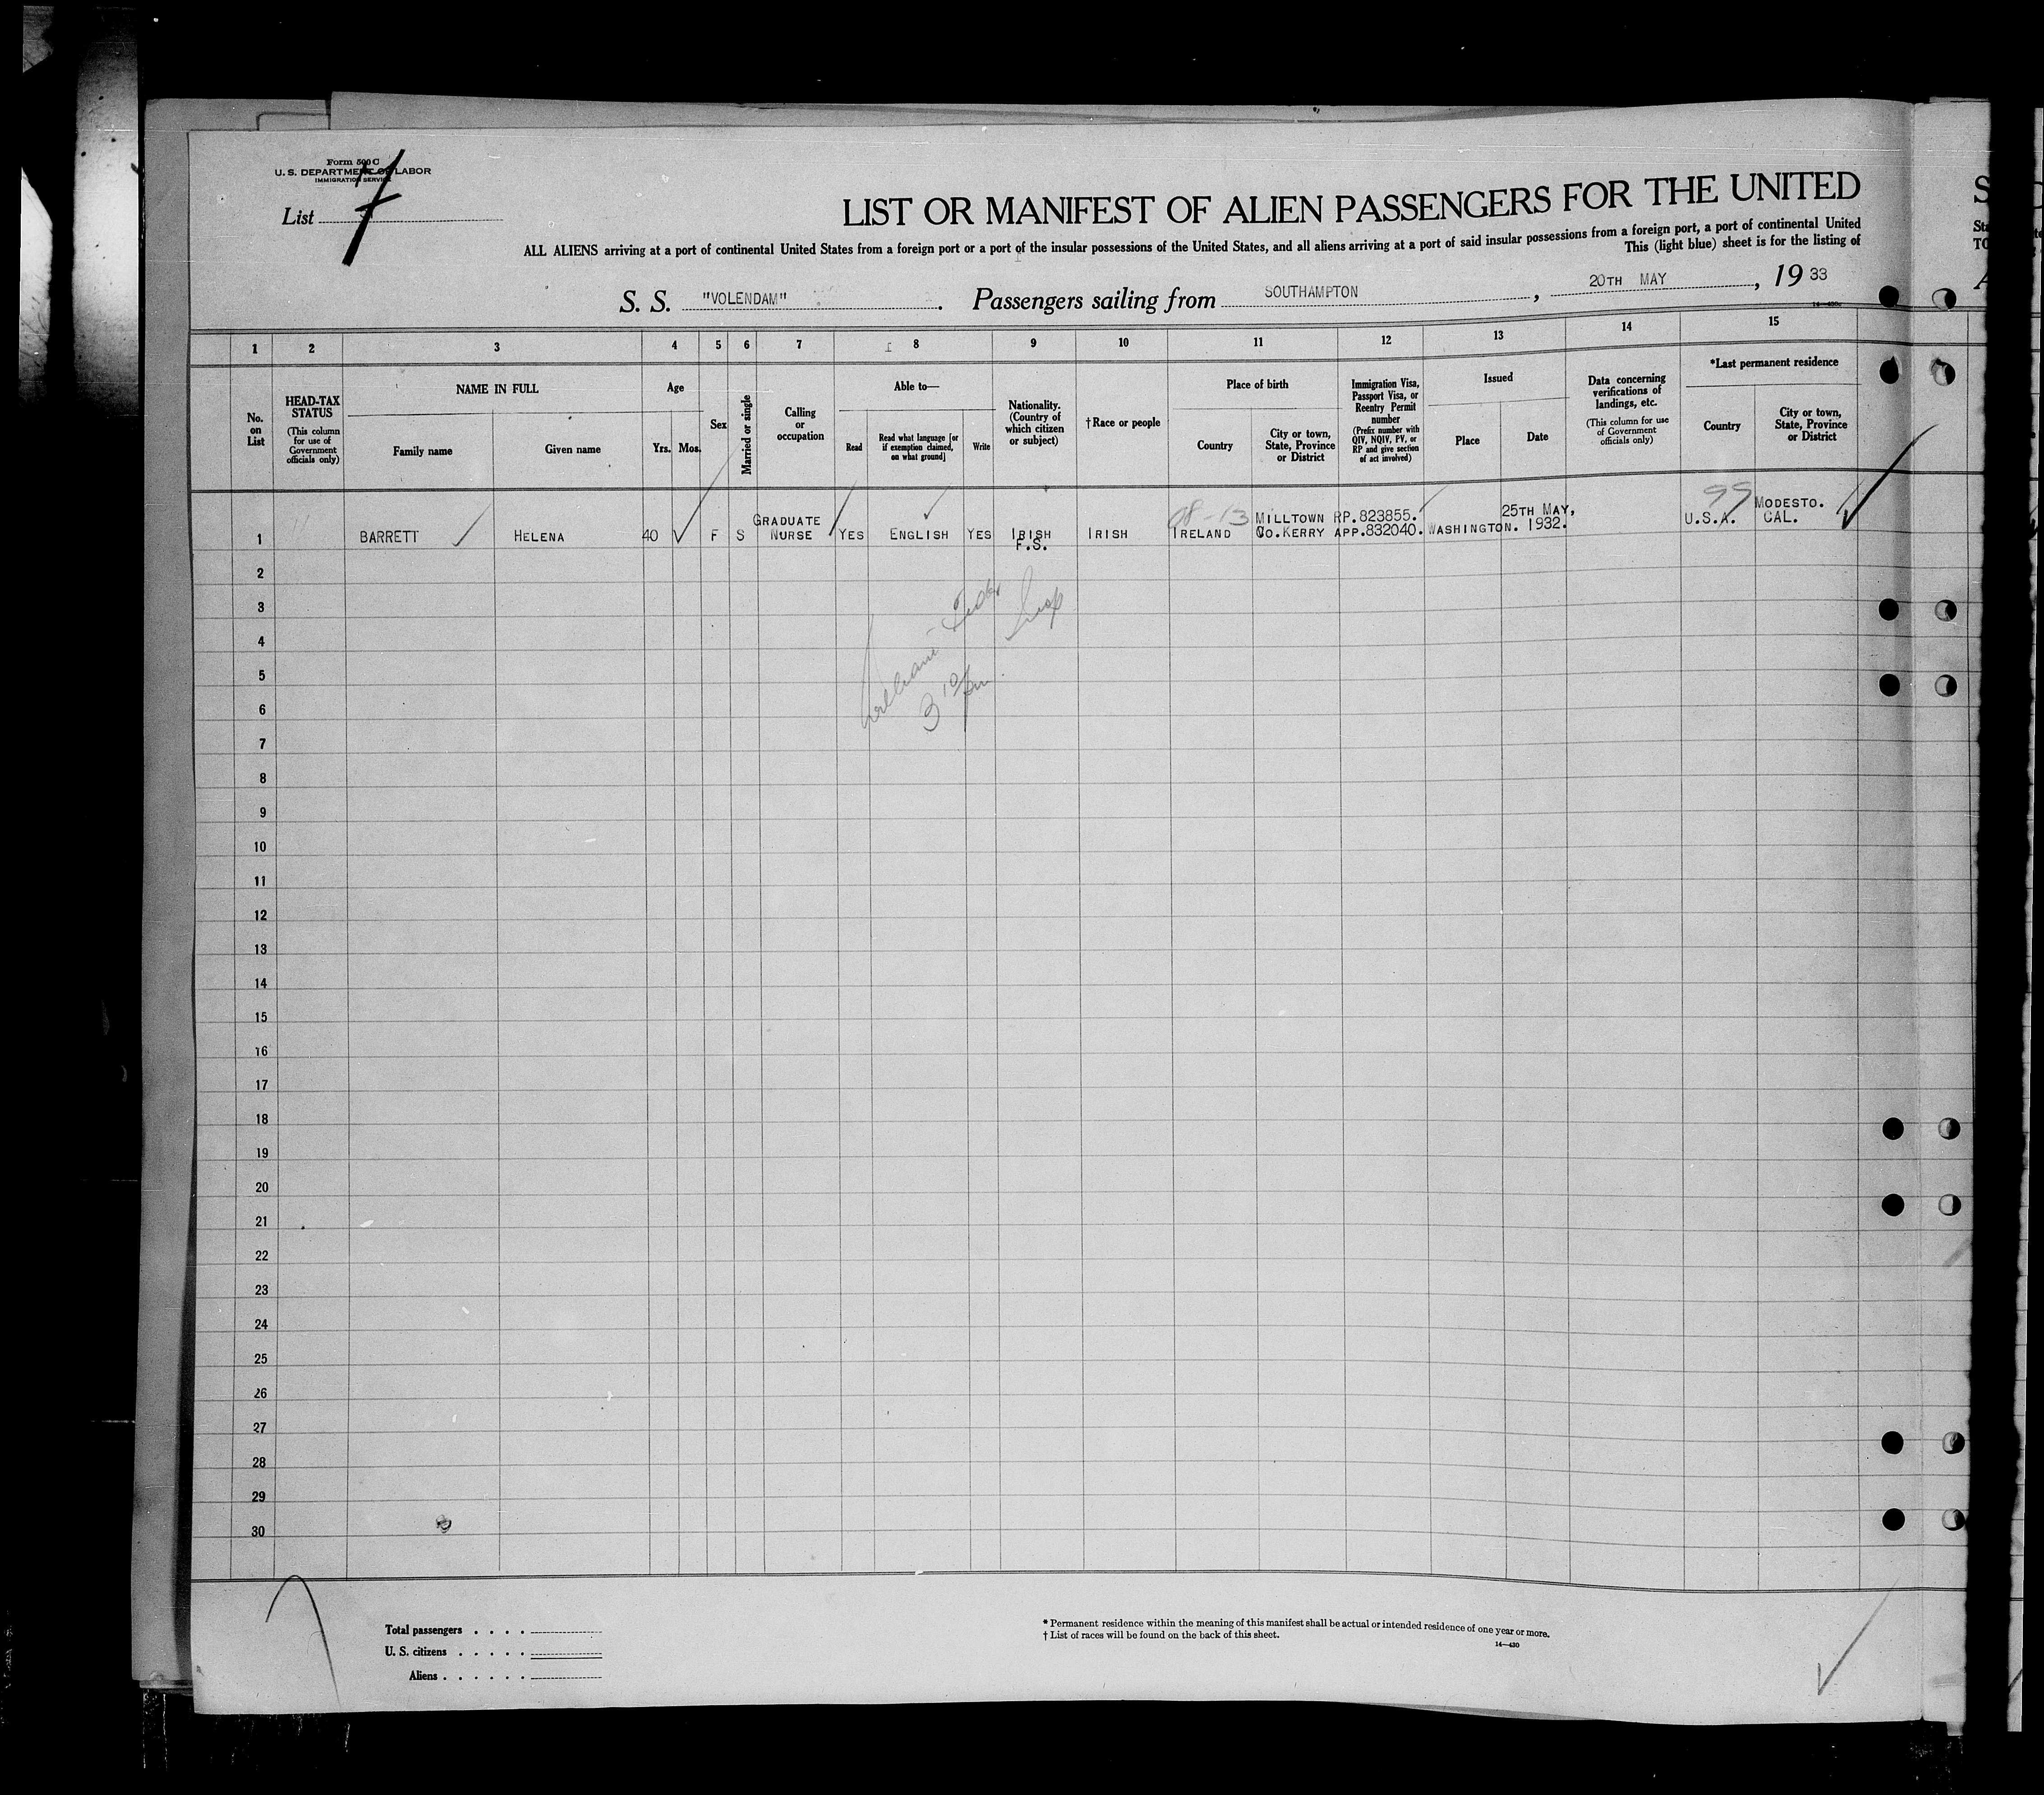 Form 500 C
U. S. DEPARTMENT OF LABOR
IMMIGRATION SERVICE
List 7
LIST OR MANIFEST OF ALIEN PASSENGERS FOR THE UNITED
ALL ALIENS arriving at a port of continental United States from a foreign port or a port of the insular possessions of the United States, and all aliens arriving at a port of said insular possessions from a foreign port, a port of continental United
This (light blue) sheet is for the listing of
S. S. "VOLENDAM" . Passengers sailing from SOUTHAMPTON , 20TH MAY , 19 33
1 2 3 4 5 6 7 8 9 10 11 12 13 14 15
No. on List
HEAD-TAX STATUS
(This column for use of Government officials only)
NAME IN FULL
Family name
Given name
Age
Yrs. Mos.
Sex
Married or single
Calling or occupation
Able to—
Read
Read what language [or if exemption claimed, on what ground]
Write
Nationality. (Country of which citizen or subject)
†Race or people
Place of birth
Country
City or town, State, Province or District
Immigration Visa, Passport Visa, or Reentry Permit number
(Prefix number with QIV, NQIV, PV, or RP and give section of act involved)
Issued
Place
Date
Data concerning verifications of landings, etc.
(This column for use of Government officials only)
*Last permanent residence
Country
City or town, State, Province or District
99
98-13
1 BARRETT HELENA 40 F S GRADUATE NURSE YES ENGLISH YES IRISH F.S. IRISH IRELAND MILLTOWN CO.KERRY RP.823855. APP.832040. WASHINGTON. 25TH MAY, 1932. U.S.A. MODESTO. CAL.
2
3
4
5
6
7
8
9
10
11
12
13
14
15
16
17
18
19
20
21
22
23
24
25
26
27
28
29
30
3 10 pm
Total passengers . . . .
U. S. citizens . . . . .
Aliens . . . . . .
* Permanent residence within the meaning of this manifest shall be actual or intended residence of one year or more.
† List of races will be found on the back of this sheet.
14—430